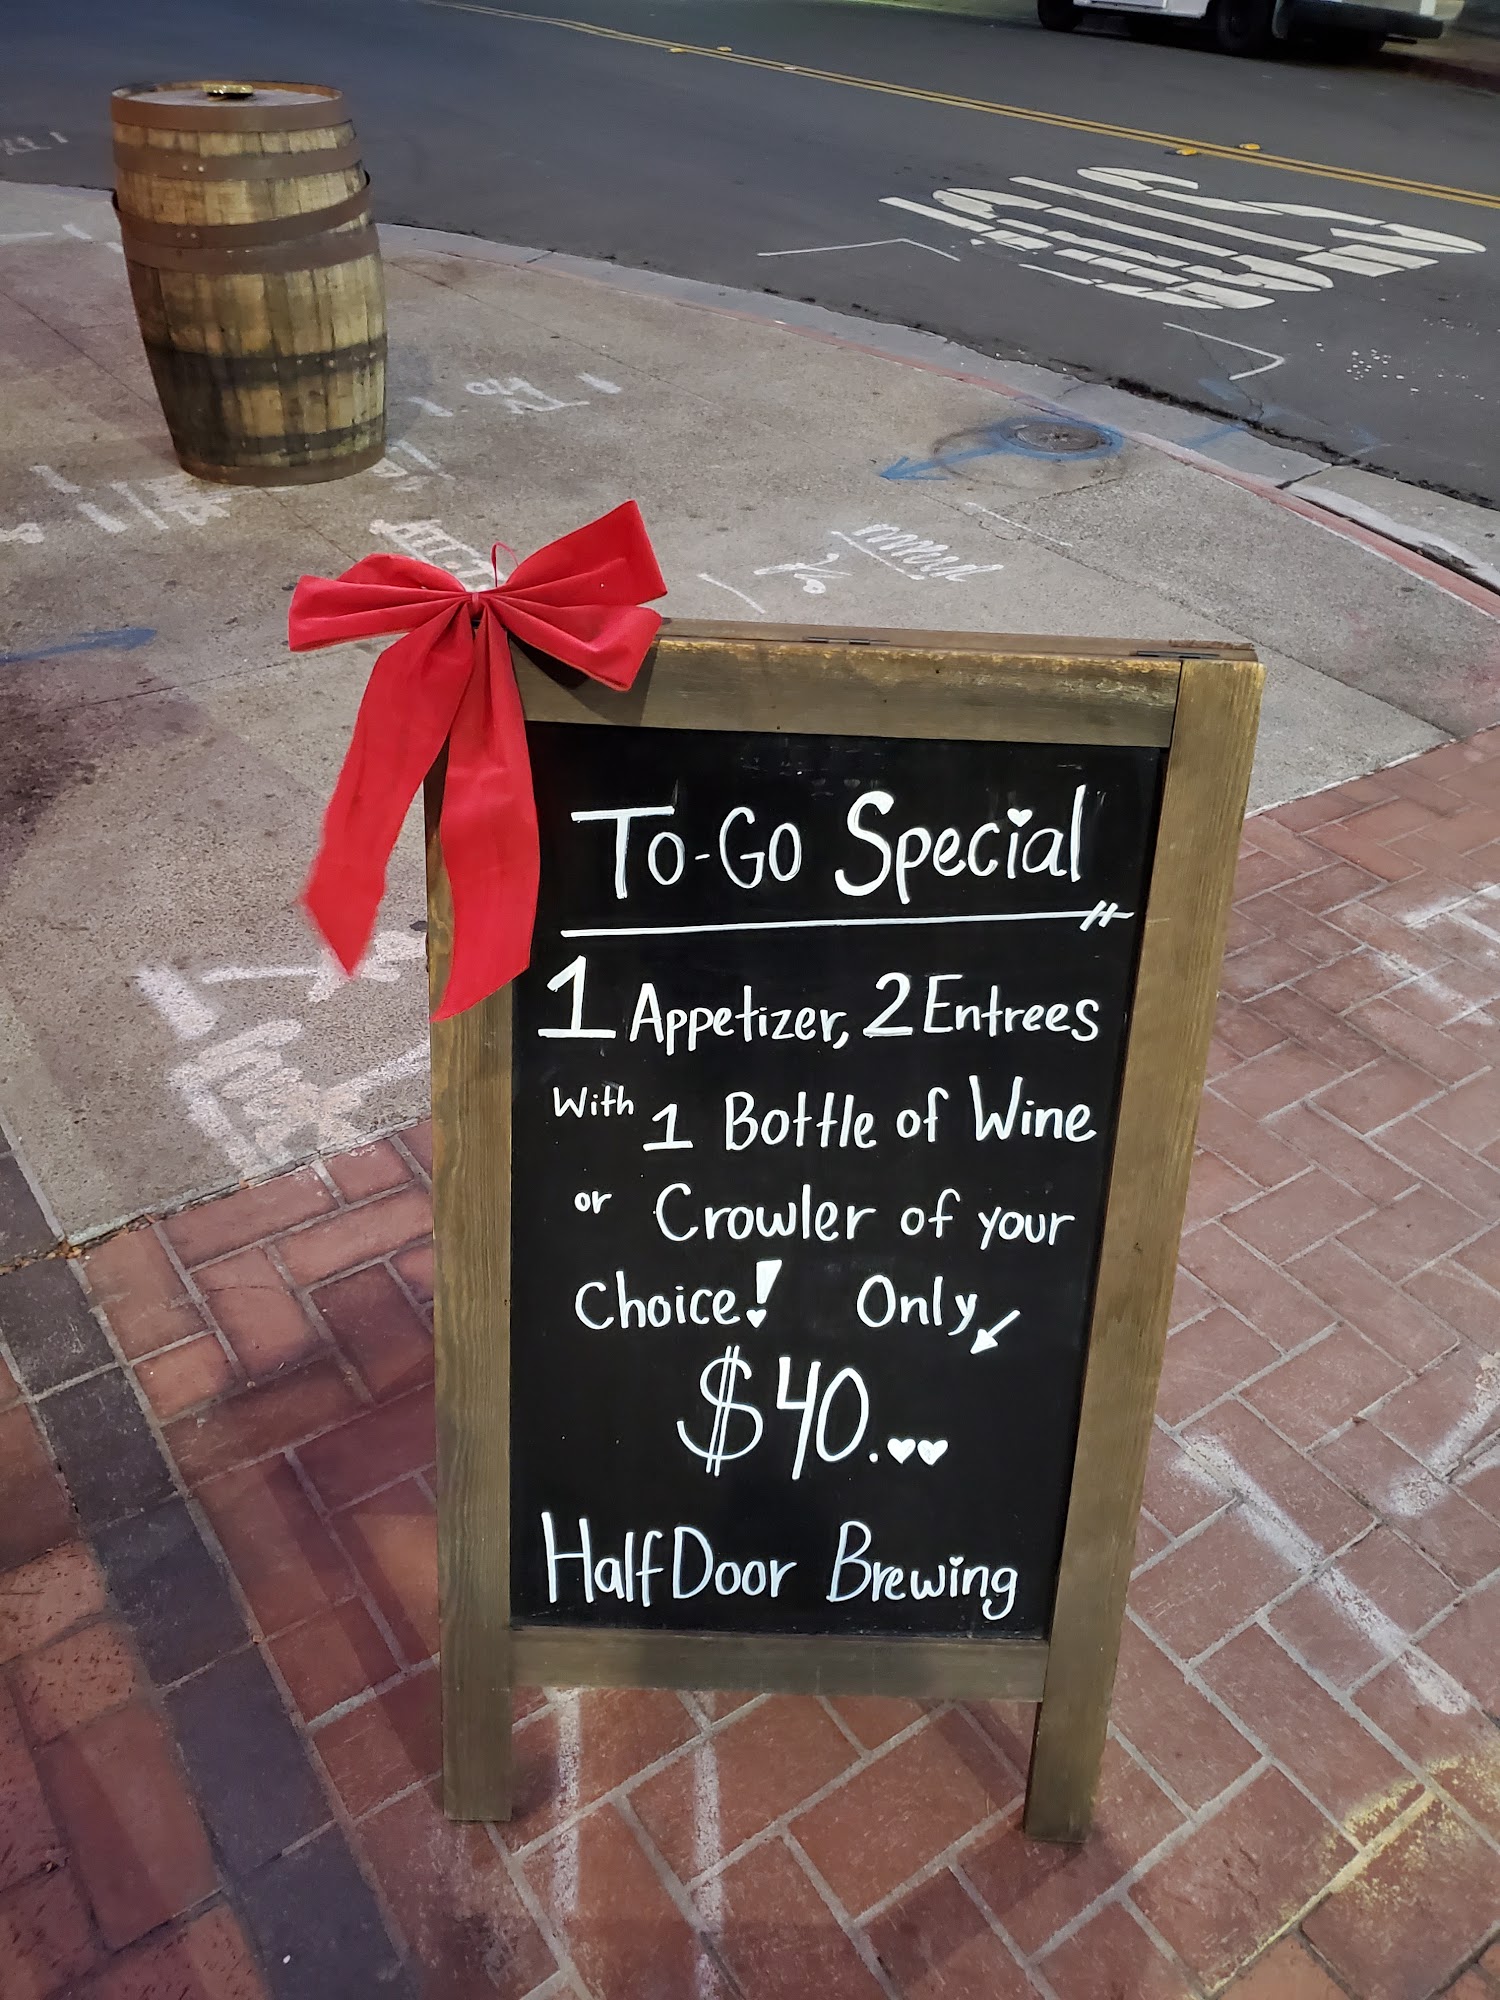 To-Go Special
1 Appetizer, 2 Entrees
With 1 Bottle of Wine
or Crowler of your
Choice! Only
$40.
HalfDoor Brewing